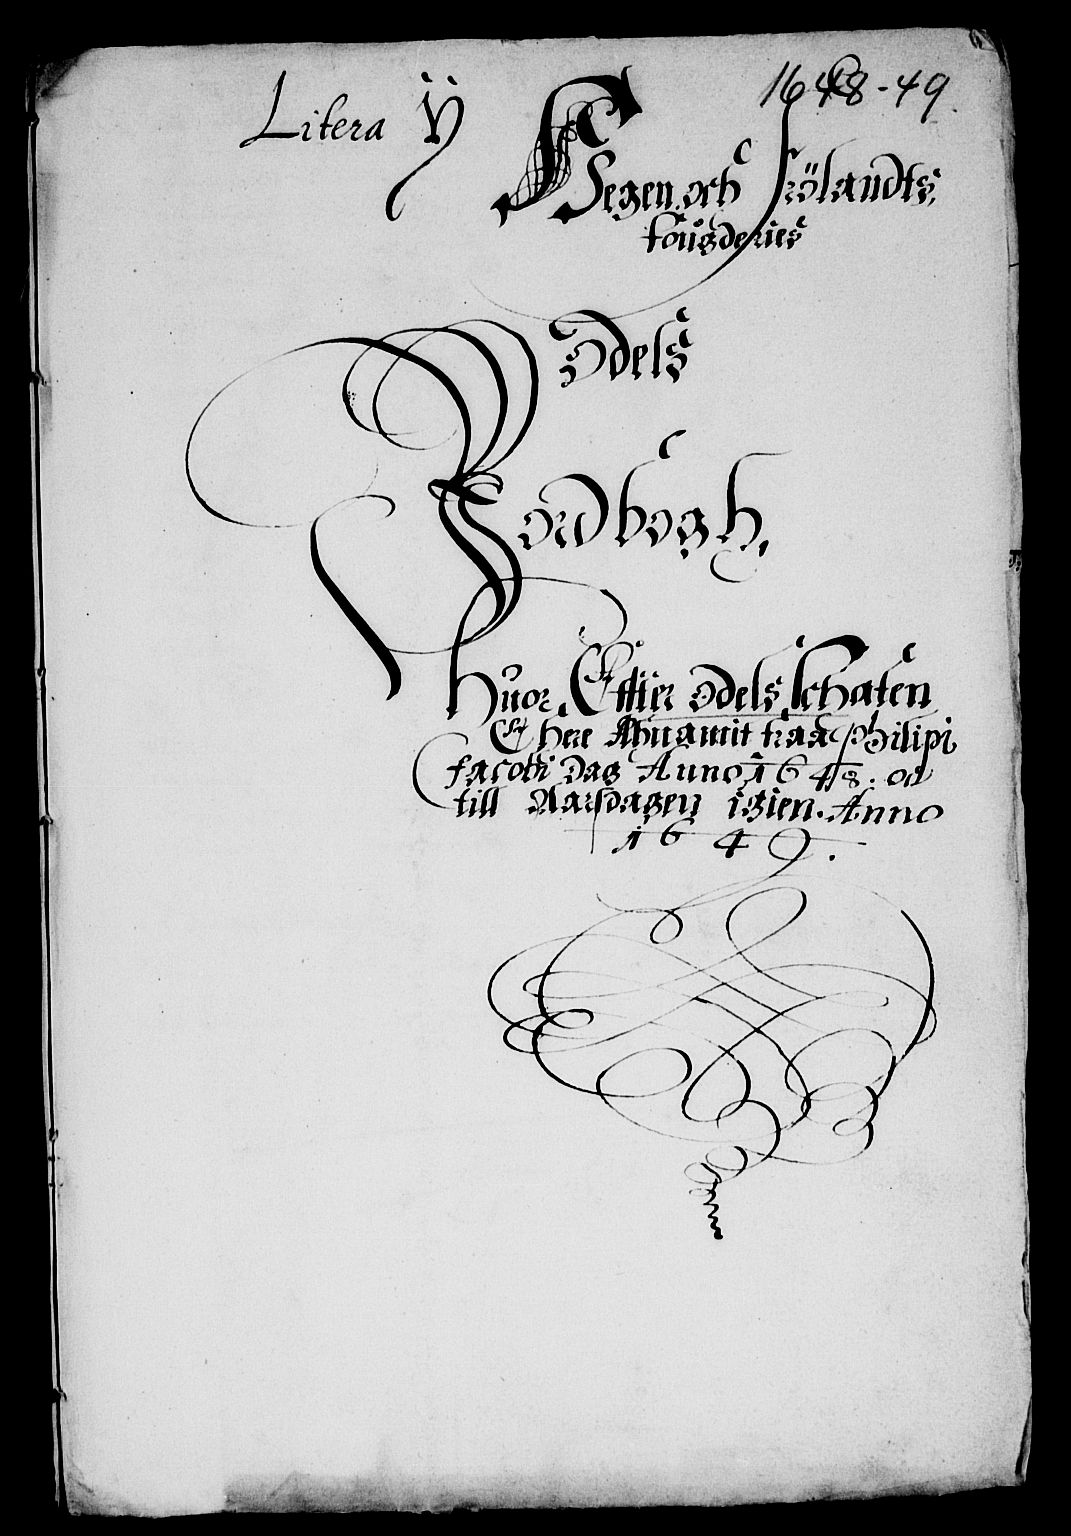 Litera ÿ
1648-49.
Segen och Frölandts,
fougderies
Odels
Jordbogh,
huor Effter odels schaten
Er here Annamit fraa Philipi
Jacobi Dag Anno 1648. och
till Aarsdagen igien. Anno
1649.